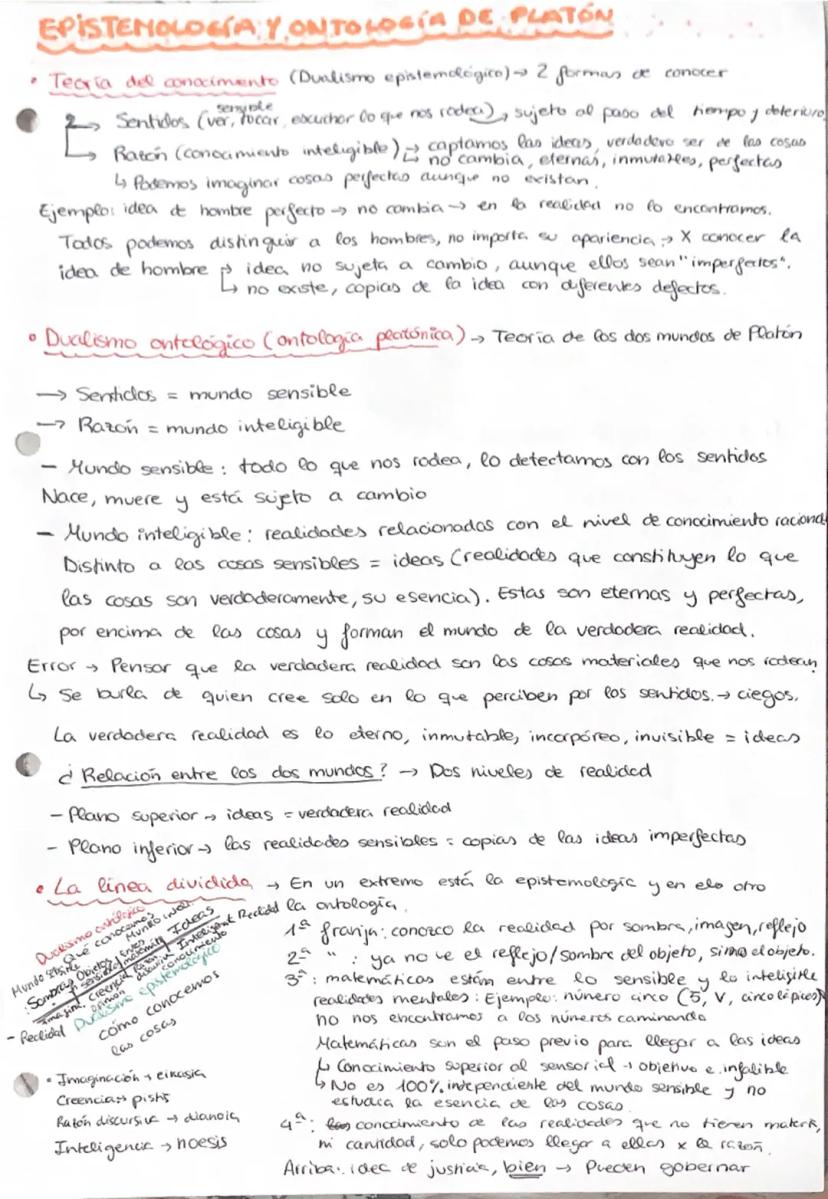 EPISTEMOLOGÍA Y ONTOLOGÍA DE PLATÓN
• Teoría del conocimiento (Dualismo epistemológico) → 2 formas de conocer
2 → Sentidos (ver, tocar, escuchar lo que nos rodea) → sujeto al paso del tiempo y deterioro
sensible
→ Razón (conocimiento inteligible) → captamos las ideas, verdadero ser de las cosas
→ no cambia, eternas, inmutables, perfectas
↳ Podemos imaginar cosas perfectas aunque no existan.
Ejemplo: idea de hombre perfecto → no cambia → en la realidad no lo encontramos.
Todos podemos distinguir a los hombres, no importa su apariencia → X conocer la
idea de hombre → idea no sujeta a cambio, aunque ellos sean "imperfectos".
↳ no existe, copias de la idea con diferentes defectos.
• Dualismo ontológico (ontología platónica) → Teoría de los dos mundos de Platón
→ Sentidos = mundo sensible
→ Razón = mundo inteligible
- Mundo sensible: todo lo que nos rodea, lo detectamos con los sentidos
Nace, muere y está sujeto a cambio
- Mundo inteligible: realidades relacionadas con el nivel de conocimiento racional
Distinto a las cosas sensibles = ideas (realidades que constituyen lo que
las cosas son verdaderamente, su esencia). Estas son eternas y perfectas,
por encima de las cosas y forman el mundo de la verdadera realidad.
Error → Pensar que la verdadera realidad son las cosas materiales que nos rodean
↳ Se burla de quien cree solo en lo que perciben por los sentidos. → ciegos.
La verdadera realidad es lo eterno, inmutable, incorpóreo, invisible = ideas
¿Relación entre los dos mundos? → Dos niveles de realidad
- Plano superior → ideas = verdadera realidad
- Plano inferior → las realidades sensibles = copias de las ideas imperfectas
• La línea dividida → En un extremo está la epistemología y en elo otro
la ontología.
Dualismo ontológico
Qué conocemos
Mundo sensible Mundo intel.
Sombras Objetos Entes Ideas Realidad
sensibles matemát.
Imagin. Creencia Razón Inteligencia
opinión discursiva conocimiento
- Realidad Dualismo epistemológico
cómo conocemos
las cosas
1ª franja: conozco la realidad por sombra, imagen, reflejo
2ª " : ya no ve el reflejo/sombra del objeto, sino el objeto.
3ª: matemáticas están entre lo sensible y lo inteligible
realidades mentales: Ejemplo: número cinco (5, V, cinco lápices)
no nos encontramos a los números caminando
Matemáticas son el paso previo para llegar a las ideas
↳ Conocimiento superior al sensorial → objetivo e infalible
↳ No es 100% independiente del mundo sensible y no
estudia la esencia de las cosas.
4ª: conocimiento de las realidades que no tienen materia,
ni cantidad, solo podemos llegar a ellas x la razón.
Arriba: idea de justicia, bien → Pueden gobernar
• Imaginación → eikasia
Creencia → pistis
Razón discursiva → dianoia
Inteligencia → noesis